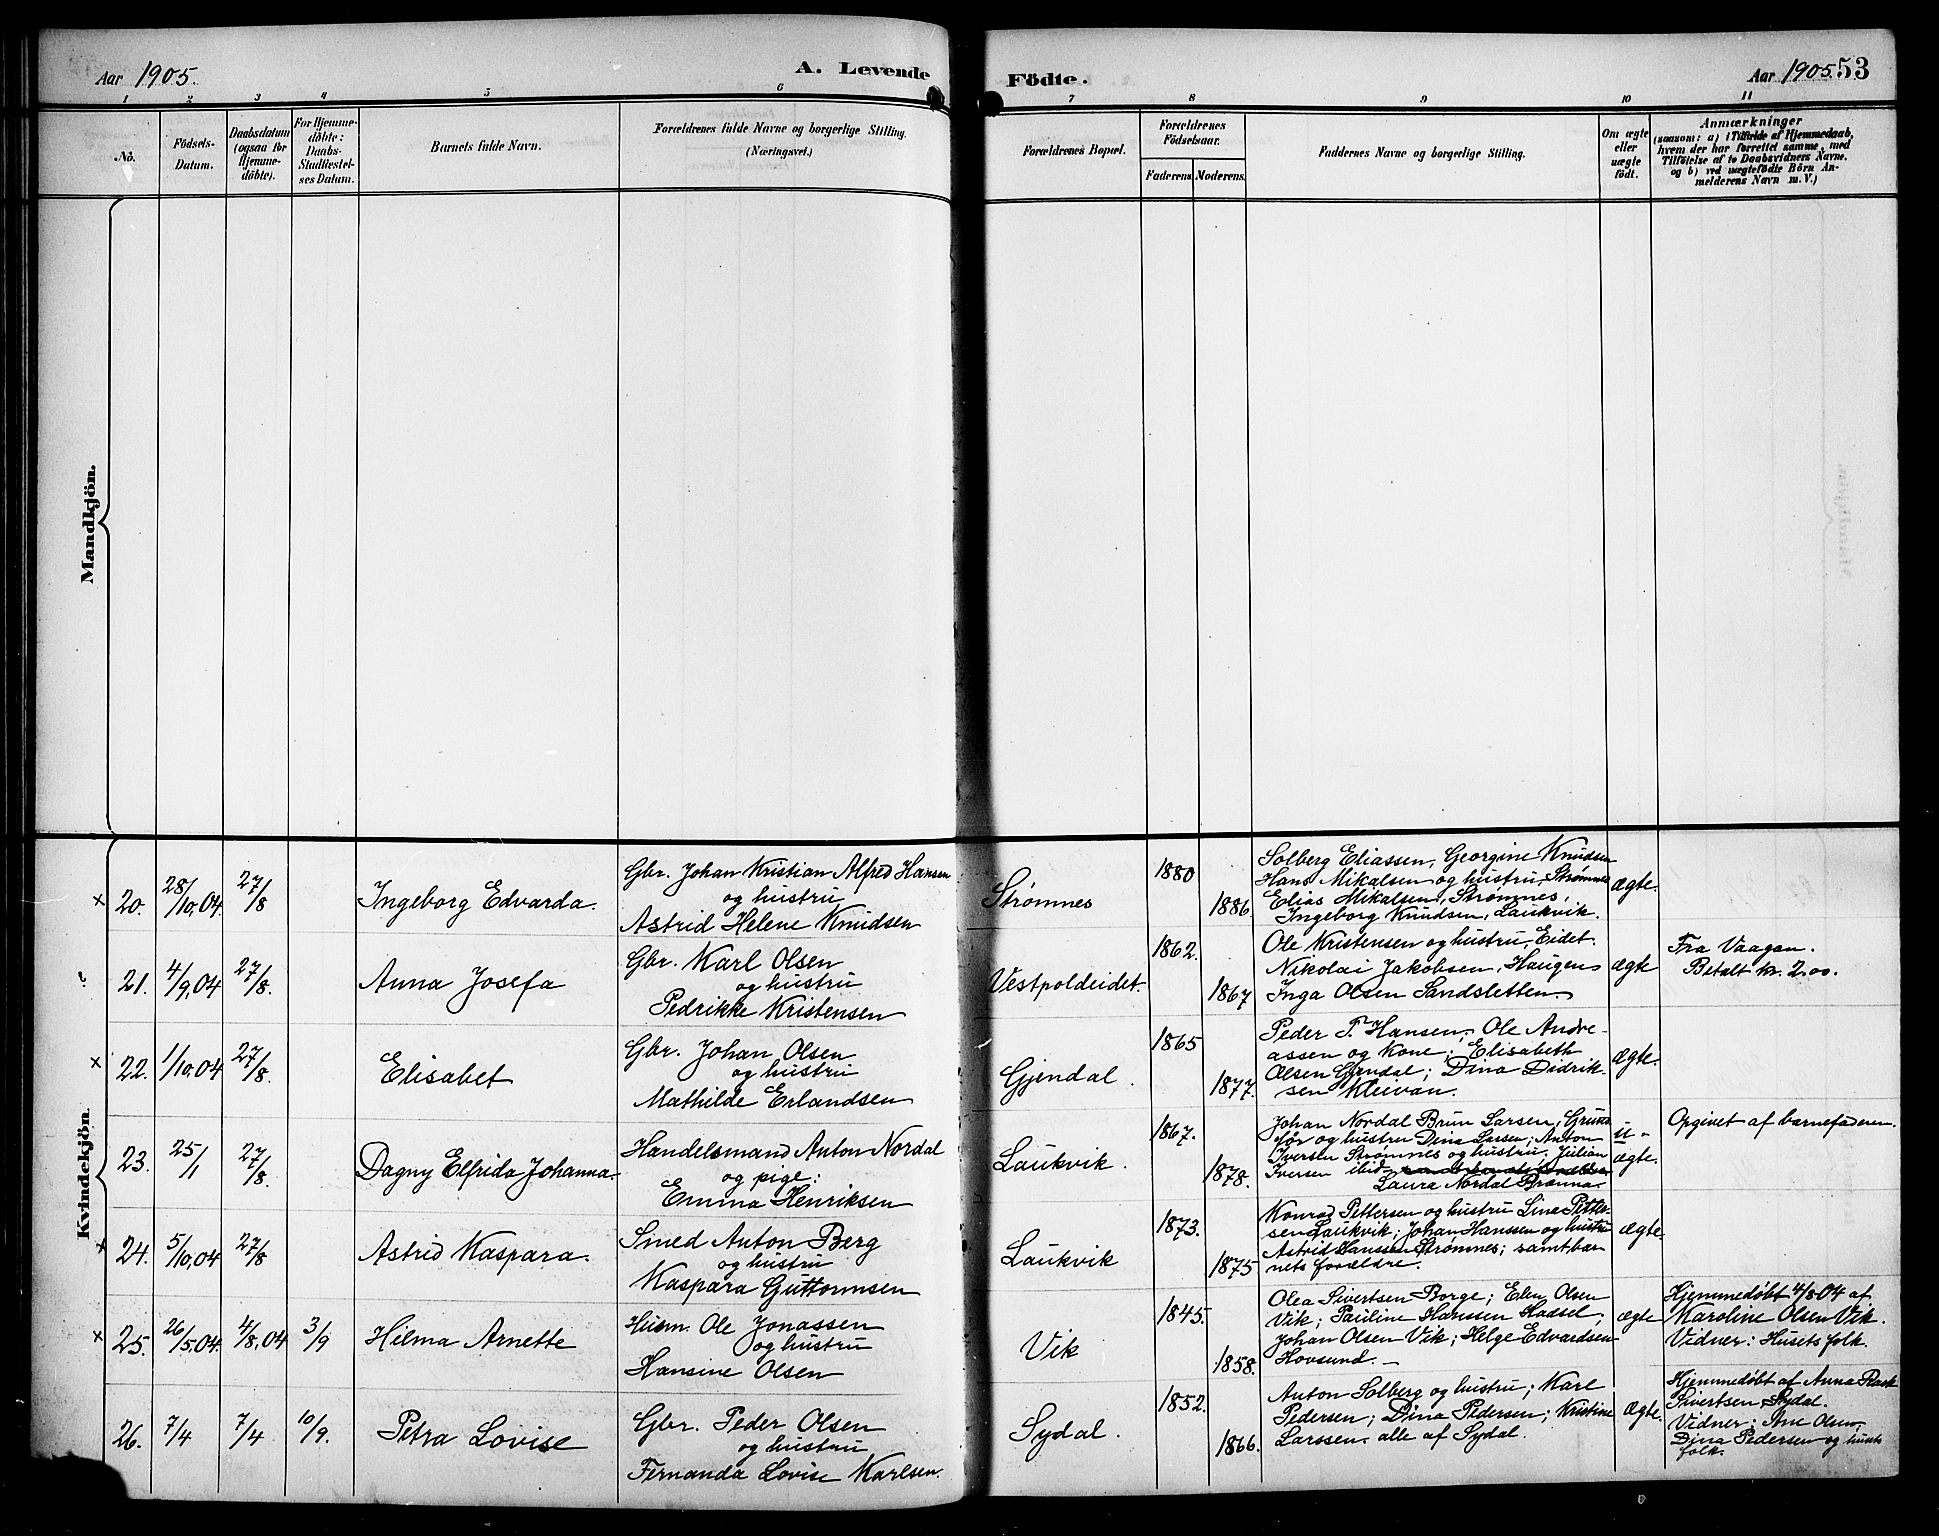 Aar 1905.
A. Levende
Födte.
Aar 1905. 53
1 2 3 4 5 6 7 8 9 10 11
No.
Födsels-
Datum.
Daabsdatum
(ogsaa for
Hjemme-
döbte).
For Hjemme-
döbte:
Daabs-
Stadfæstel-
ses Datum.
Barnets fulde Navn.
Forældrenes fulde Navne og borgerlige Stilling.
(Næringsvei.)
Forældrenes Bopæl.
Forældrenes
Födselsaar.
Faderens.
Moderens.
Faddernes Navne og borgerlige Stilling.
Om ægte
eller
uægte
födt.
Anmærkninger
(saasom: a) i Tilfælde af Hjemmedaab,
hvem der har forrettet samme, med
Tilföielse af to Daabsvidners Navne,
og b) ved uægtefödte Börn An-
melderens Navn m. V.)
Mandkjön.
Kvindekjön.
× 20. 28/10,04. 27/8
Ingeborg Edvarda.
Gbr. Johan Kristian Alfred Hansen
og hustru
Astrid Helene Knudsen
Strømnes
1880
1886.
Solberg Eliassen, Georgine Knudsen
Hans Mikalsen og hustru, Strømnes
Elias Mikalsen, Strømnes,
Ingeborg Knudsen, Laukvik.
ægte.
21. 4/9,04 27/8.
Anna Josefa
Gbr. Karl Olsen
og hustru
Pedrikke Kristensen
Vestpoldeidet.
1862.
1867
Ole Kristensen og hustru, Eidet.
Nikolai Jakobsen, Haugen
Inga Olsen Sandsletten.
ægte
Fra Vaagan.
Betalt kr. 2,00.
× 22. 1/10,04 27/8.
Elisabet
Gbr. Johan Olsen
og hustru
Mathilde Erlandsen
Gjendal.
1865
1877.
Peder T. Hansen; Ole Andre-
assen og Kone; Elisabeth
Olsen Gjendal; Dina Didrik-
sen Kleivan.
ægte.
23. 25/1 27/8.
Dagny Elfrida Johanna.
Handelsmand Anton Nordal
og pige:
Emma Henriksen
Laukvik.
1867.
1878.
Johan Nordal Brun Larsen, Grunn
før og hustru Dina Larsen; Anton
Iversen Strømnes og hustru. Julian
Iversen ibid.
Laura Nordal Brenna.
u-
ægte.
Opgivet af barnefaderen.
× 24. 5/10,04 27/8
Astrid Kaspara.
Smed Anton Berg
og hustru
Kaspara Guttormsen
Laukvik
1873.
1875
Konrad Pettersen og hustru Lina Petter-
sen Laukvik; Johan Hanssen og hustru
Astrid Hanssen Strømnes; samt bar-
nets forældre.
ægte.
× 25. 26/5.04. 4/8,04 3/9
Hilma Arnette
Husm. Ole Jonassen
og hustru
Hansine Olsen
Vik
1845.
1858.
Olea Sivertsen Borge; Elen Olsen
Vik; Pauline Hanssen Hadsel;
Johan Olsen Vik; Helge Edvardsen
Hovsund. —
ægte
Hjemmedøbt 4/8-04 af
Karoline Olsen Vik.
Vidner: Husets folk.
26. 7/4 7/4 10/9.
Petra Lovise
Gbr. Peder Olsen
og hustru
Fernanda Lovise Karlsen.
Sydal.
1852.
1866.
Anton Solberg og hustru; Karl
Pedersen; Dina Pedersen; Kristine
Larssen. alle af Sydal.
ægte.
Hjemmedøbt af Anna Rask
Sivertsen Sydal.
Vidner: Ane Olsen,
Dina Pedersen og husets
folk.